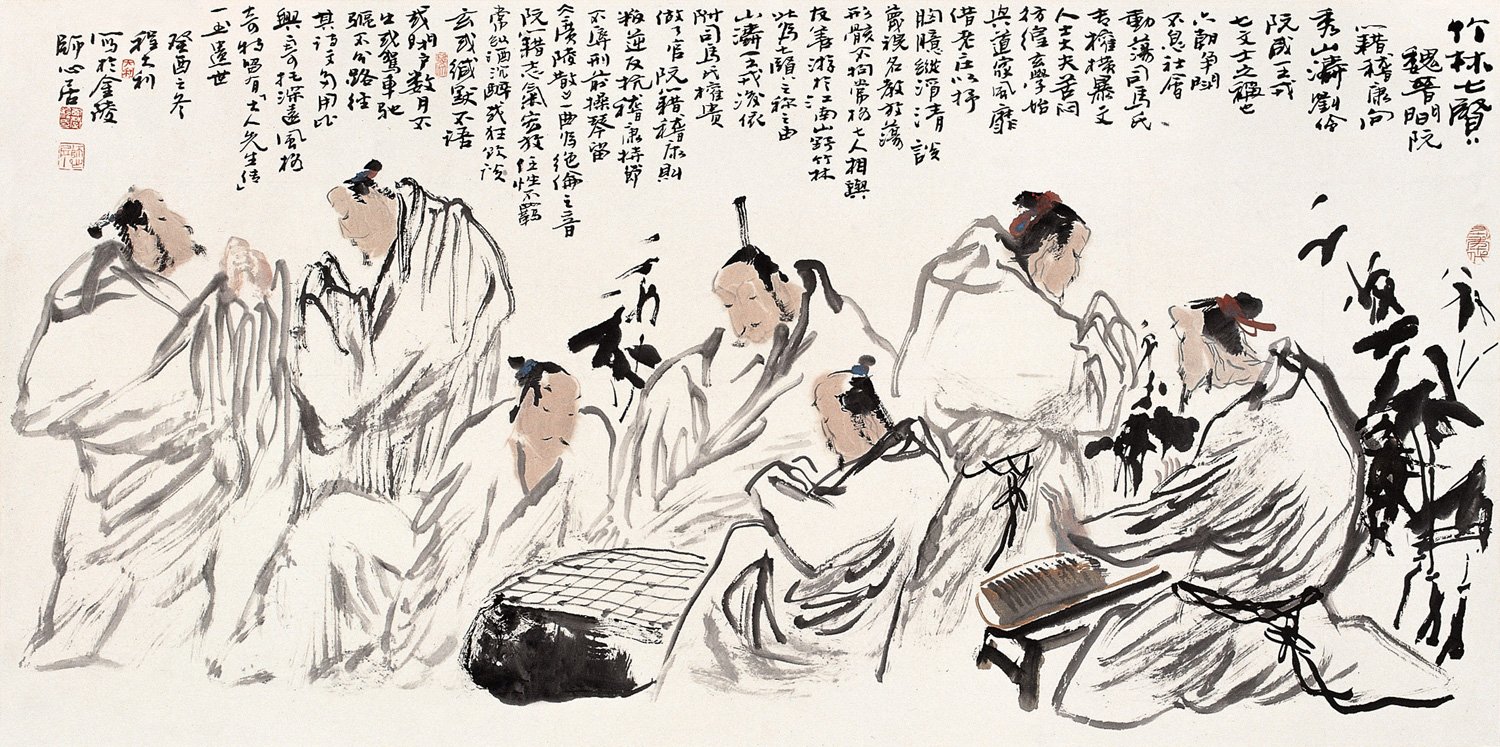 竹林七賢
魏晋間阮
籍嵇康向
秀山濤劉伶
阮咸王戎
七文士之稱也
六朝争鬥
不息社會
動蕩司馬氏
专擅横暴文
人士大夫苦悶
彷徨玄學始
與道家風靡
借老庄以抒
胸臆縱酒清談
蔑視名教放蕩
形骸不拘常格七人相與
友善游於江南山野竹林
此為七賢之称之由
山濤王戎後依
附司馬氏權貴
做了官阮籍嵇康則
叛逆反抗嵇康持節
不辱刑前操琴留
《廣陵散》一曲為絶倫之音
阮籍志氣宏放任性不羈
常縱酒沉醉或狂飲談
玄或緘默不語
或閉户数月不
出或驾車馳
騁不分路徑
其詩文句用比
興寄托深遠風格
奇特留有《大人先生传》
一文遺世
癸酉之冬
程大利
寫於金陵
師心居